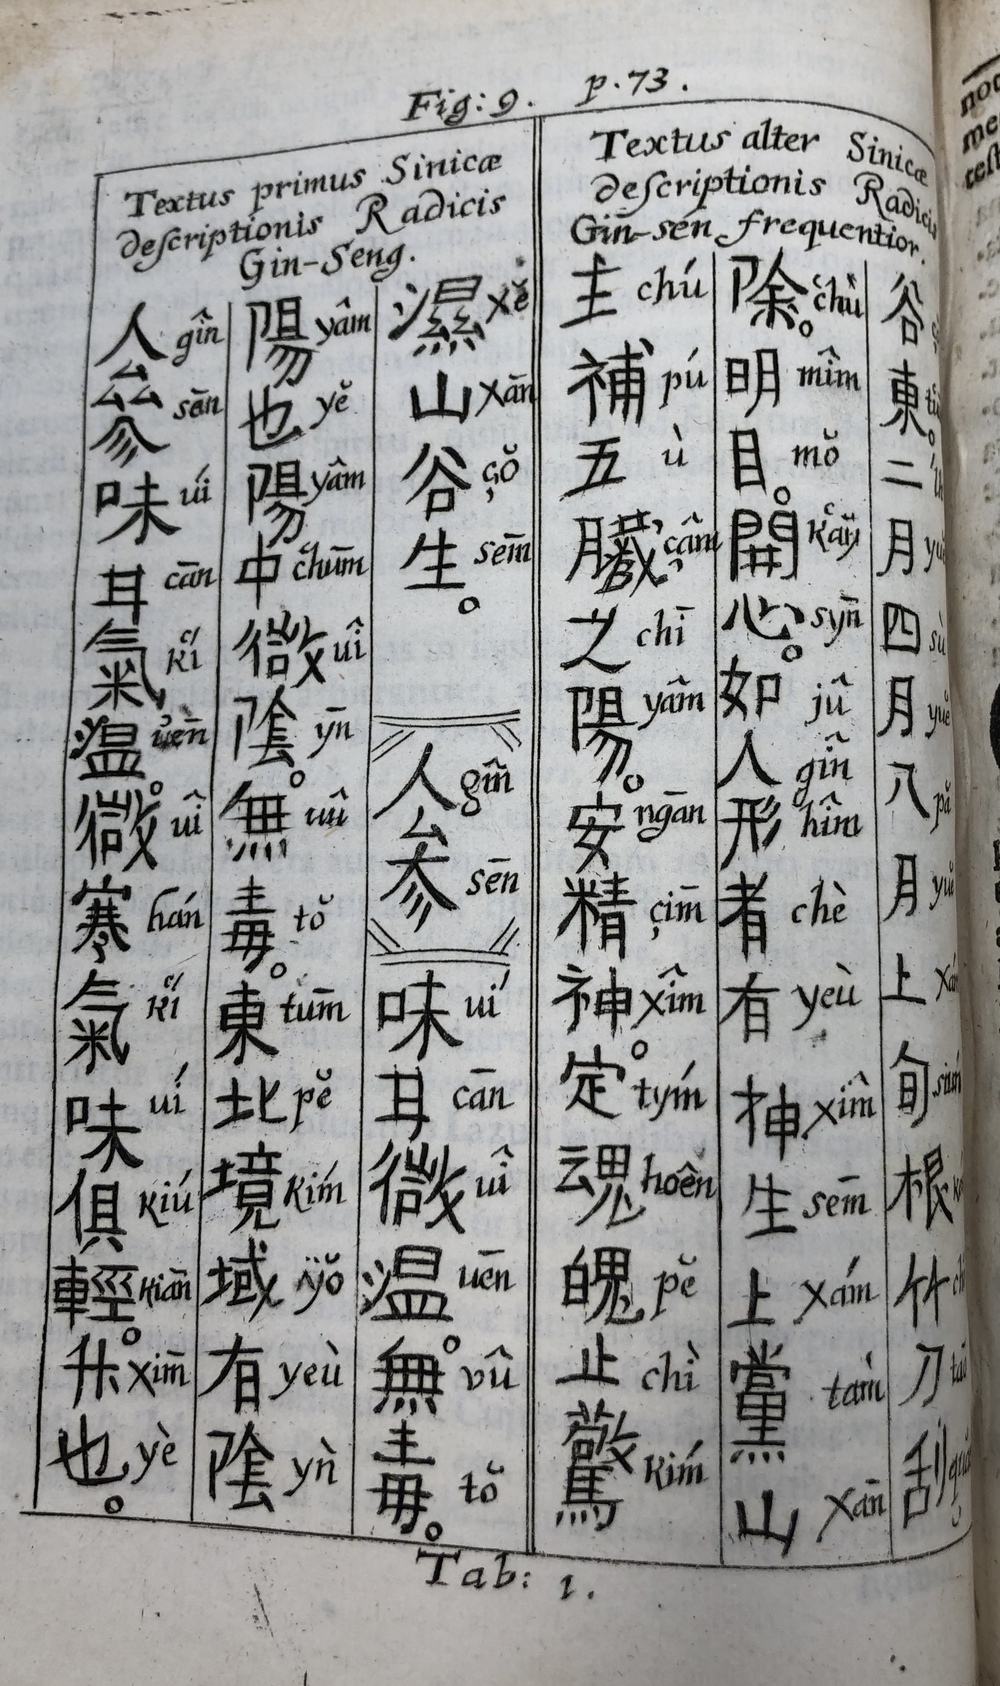 Fig: 9. p. 73.
Textus primus Sinicæ
deſcriptionis Radicis
Gin-Seng.
人 gîn 參 sēn 味 uí 甘 cān 氣 kí 温 uēn 。 微 uî 寒 hán 氣 kí 味 uí 俱 kiú 輕 kiān 。 升 xim̄ 也 yè 。
陽 yâm 也 yĕ 陽 yâm 中 chūm 微 uî 陰 ȳn 。 無 uû 毒 tŏ 。 東 tum̄ 北 pĕ 境 kím 域 yŏ 有 yeù 陰 yǹ
濕 xĕ 山 xān 谷 çŏ 生 sem̄ 。
人 gîn 參 sēn
味 uí 甘 cān 微 uî 温 uēn 。 無 vû 毒 tŏ 。
Textus alter Sinicæ
deſcriptionis Radicis
Gin-sén frequentior.
主 chú 補 pú 五 ù 臟 çâm 之 chī 陽 yâm 。 安 ngān 精 çim̄ 神 xîm 。 定 tým 魂 hoên 魄 pĕ 止 chì 驚 kím
除 chù 。 明 mîm 目 mŏ 。 開 kāy 心 sȳn 。 如 jû 人 gîn 形 hîm 者 chè 有 yeù 神 xîm 生 sem̄ 上 xám 黨 tàm 山 xān
谷 東 。 二 月 四 月 八 月 上 旬 根 竹 刀 刮
Tab: 1.